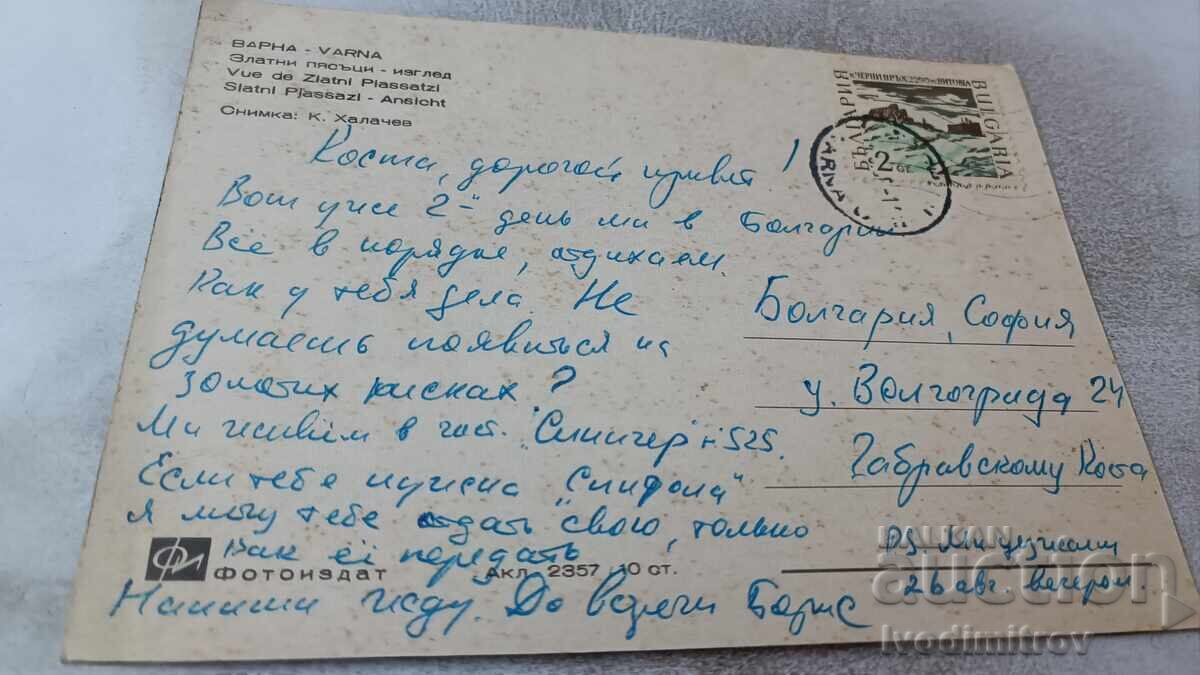 ВАРНА - VARNA
Златни пясъци - изглед
Vue de Zlatni Piassatzi
Slatni Pjassazi - Ansicht
Снимка: К. Халачев
ЧЕРНИ ВРЪХ 2290 м. ВИТОША
БЪЛГАРИЯ
BULGARIA
2 ст.
Коста, дорогой привет!
Вот уже 2-й день ми в Болгарии.
Всё в порядке, отдихаем.
Как у тебя дела. Не
думаешь появиться на
золотих писках?
Ми живём в гост.
525.
Если тебе нужна
я могу тебе отдать свою, только
как её передать
Напиши жду. До встречи Борис
Болгария, София
у. Волгограда 24
Габравскому Коста
26 авг. вечером.
ФИ
ФОТОИЗДАТ
Акл. 2357 10 ст.
BALKAN
auction
Ivodimitrov